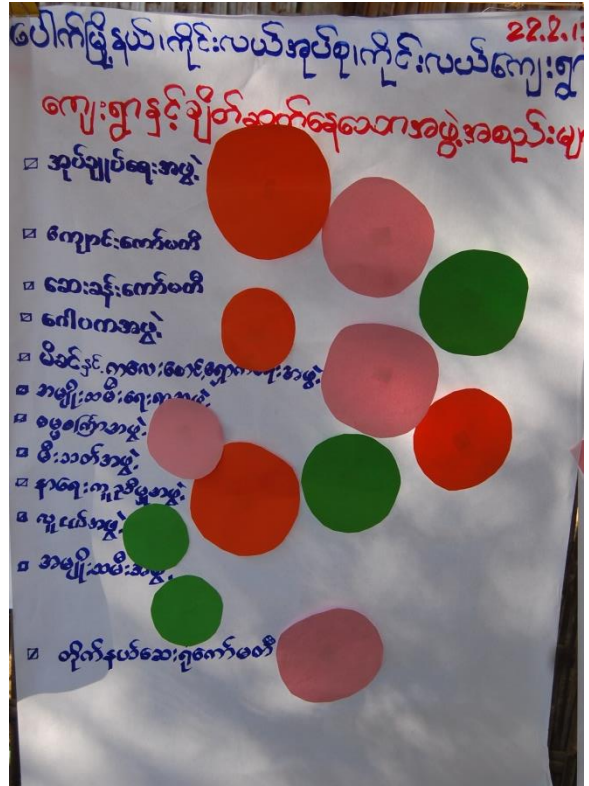 22.2.1
ပေါက်မြို့နယ်၊ကိုင်းလယ်အုပ်စု၊ကိုင်းလယ်ကျေးရွာ
ကျေးရွာနှင့်ချိတ်ဆက်နေသောအဖွဲ့အစည်းမျ
အုပ်ချုပ်ရေးအဖွဲ့
ကျောင်းကော်မတီ
ဆေးခန်းကော်မတီ
ဂေါပကအဖွဲ့
မိခင်နှင့်ကလေးစောင့်ရှောက်ရေးအဖွဲ့
အမျိုးသမီးရေးရာအဖွဲ့
ဓမ္မစကြာအဖွဲ့
မီးသတ်အဖွဲ့
နာရေးကူညီမှုအဖွဲ့
လူငယ်အဖွဲ့
အမျိုးသမီးအဖွဲ့
တိုက်နယ်ဆေးရုံကော်မတီ